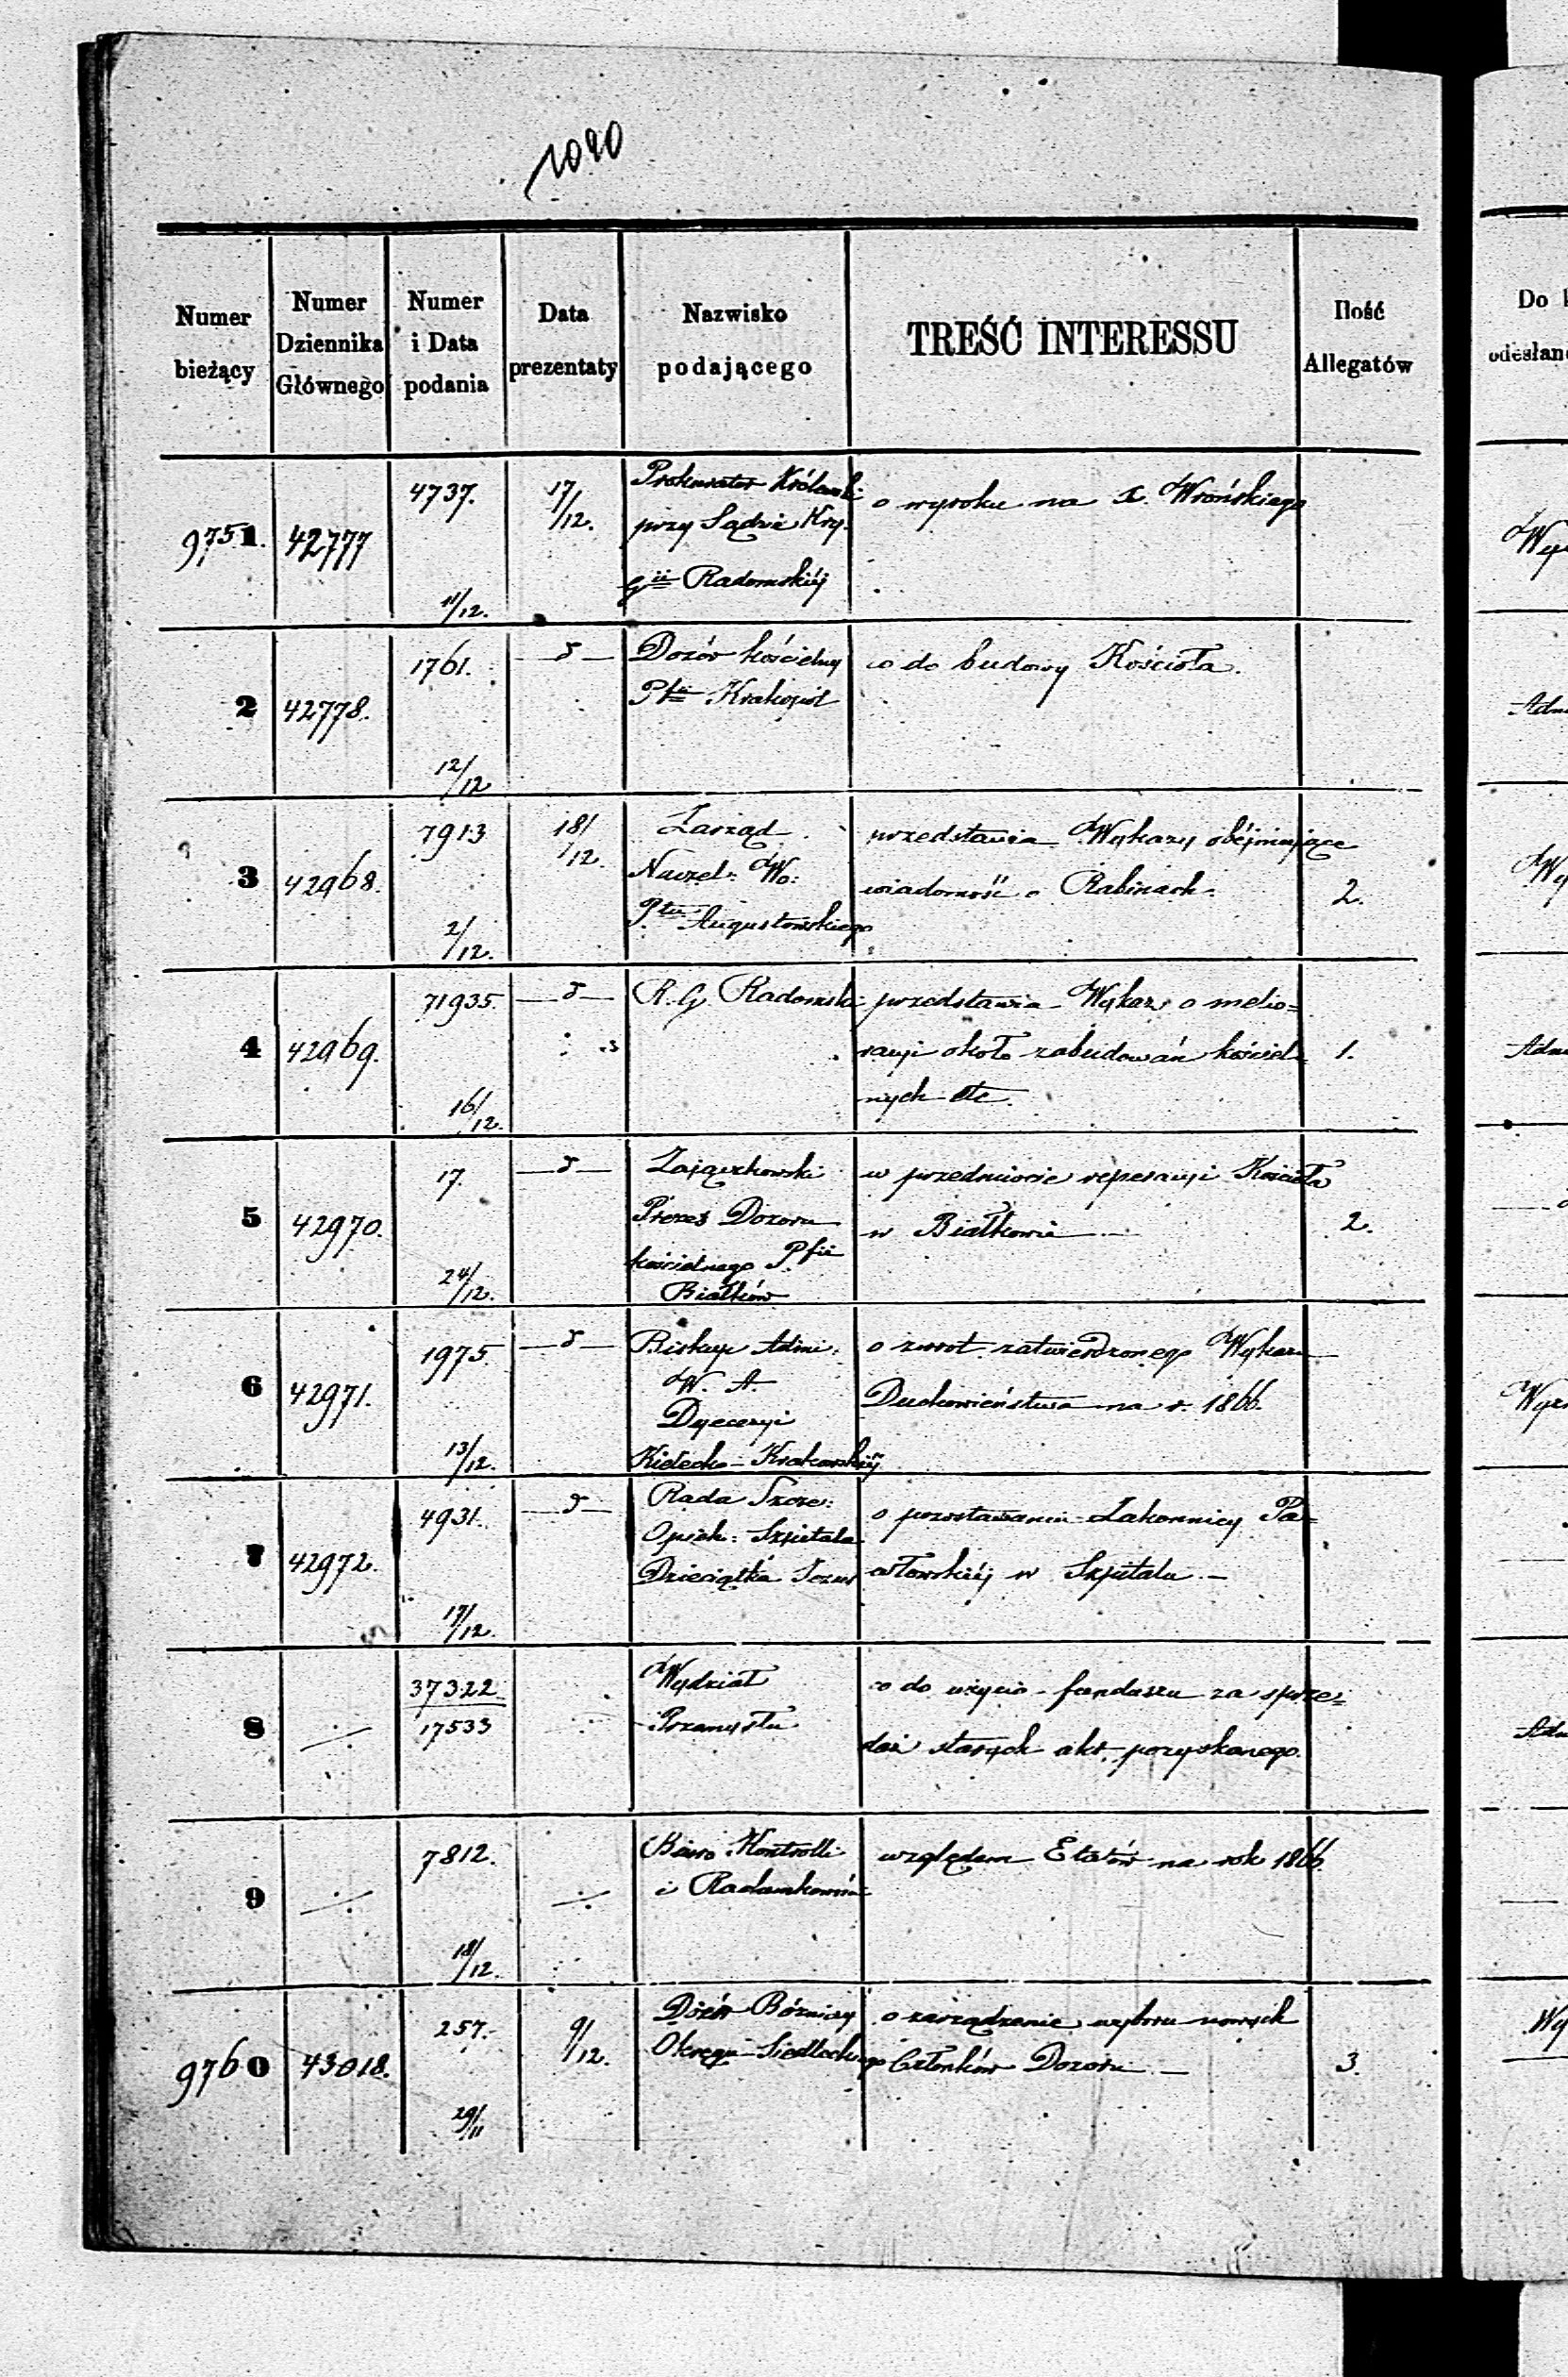 1020
Numer bieżący
Numer Dziennika Głównego
Numer i Data podania
Data prezentaty
Nazwisko podającego
TREŚĆ INTERESSU
Ilość Allegatów
Do
odesłan
9751. 42777 4737. 11/12. 17/12.
Prokurator Królewski
przy Sądzie Kry.
Gii Radomskiéj
o wyroku na X. Wrońskiego
Wy
2 42778. 1761. 12/12
Dozór kościelny
co do budowy Kościoła.
Adm
3 42968. 7913 2/12. 18/12.
Zarząd
Naczel: Wo:
Ptu Augustowskiego
przedstawia Wykazy obéjmujące
wiadomość o Rabinach.
2.
Wy
4 42969. 71935. 16/12.
R. G. Radomski
przedstawia Wykaz o melio=
racyi około zabudowań kościel=
nych etc.
1.
Adm
5 42970. 17. 24/12.
Zajączkowski
Prezes Dozoru
kościelnego Pfii
Białków
w przedmiocie reperacyi Kościoła
w Białkowie
2.
6 42971. 1975. 13/12.
Biskup Admi:
W. A.
Dyecezyi
Kielecko-Krakowskiéj
o zwrot zatwierdzonego Wykazu
Duchowieństwa na r. 1866.
7 42972. 4931. 17/12.
Rada Szcze:
Opiek: Szpitala
Dzieciątka Jezus
o pozostawieniu Zakonnicy Pa=
włowskiéj w Szpitalu. —
8 37322 17533
Wydział
Przemysłu
co do użycia funduszu za sprze=
daż starych akt pozyskanego.
Adm
9 7812. 18/12.
Biuro Kontrolli
i Rachunkowości
względem Etatów na rok 1866.
9760 43018. 257. 29/11 9/12.
Dozór Bóżniczy
Okręgu Siedleckiego
o zarządzenie wyboru nowych
Członków Dozoru. —
3.
Wy